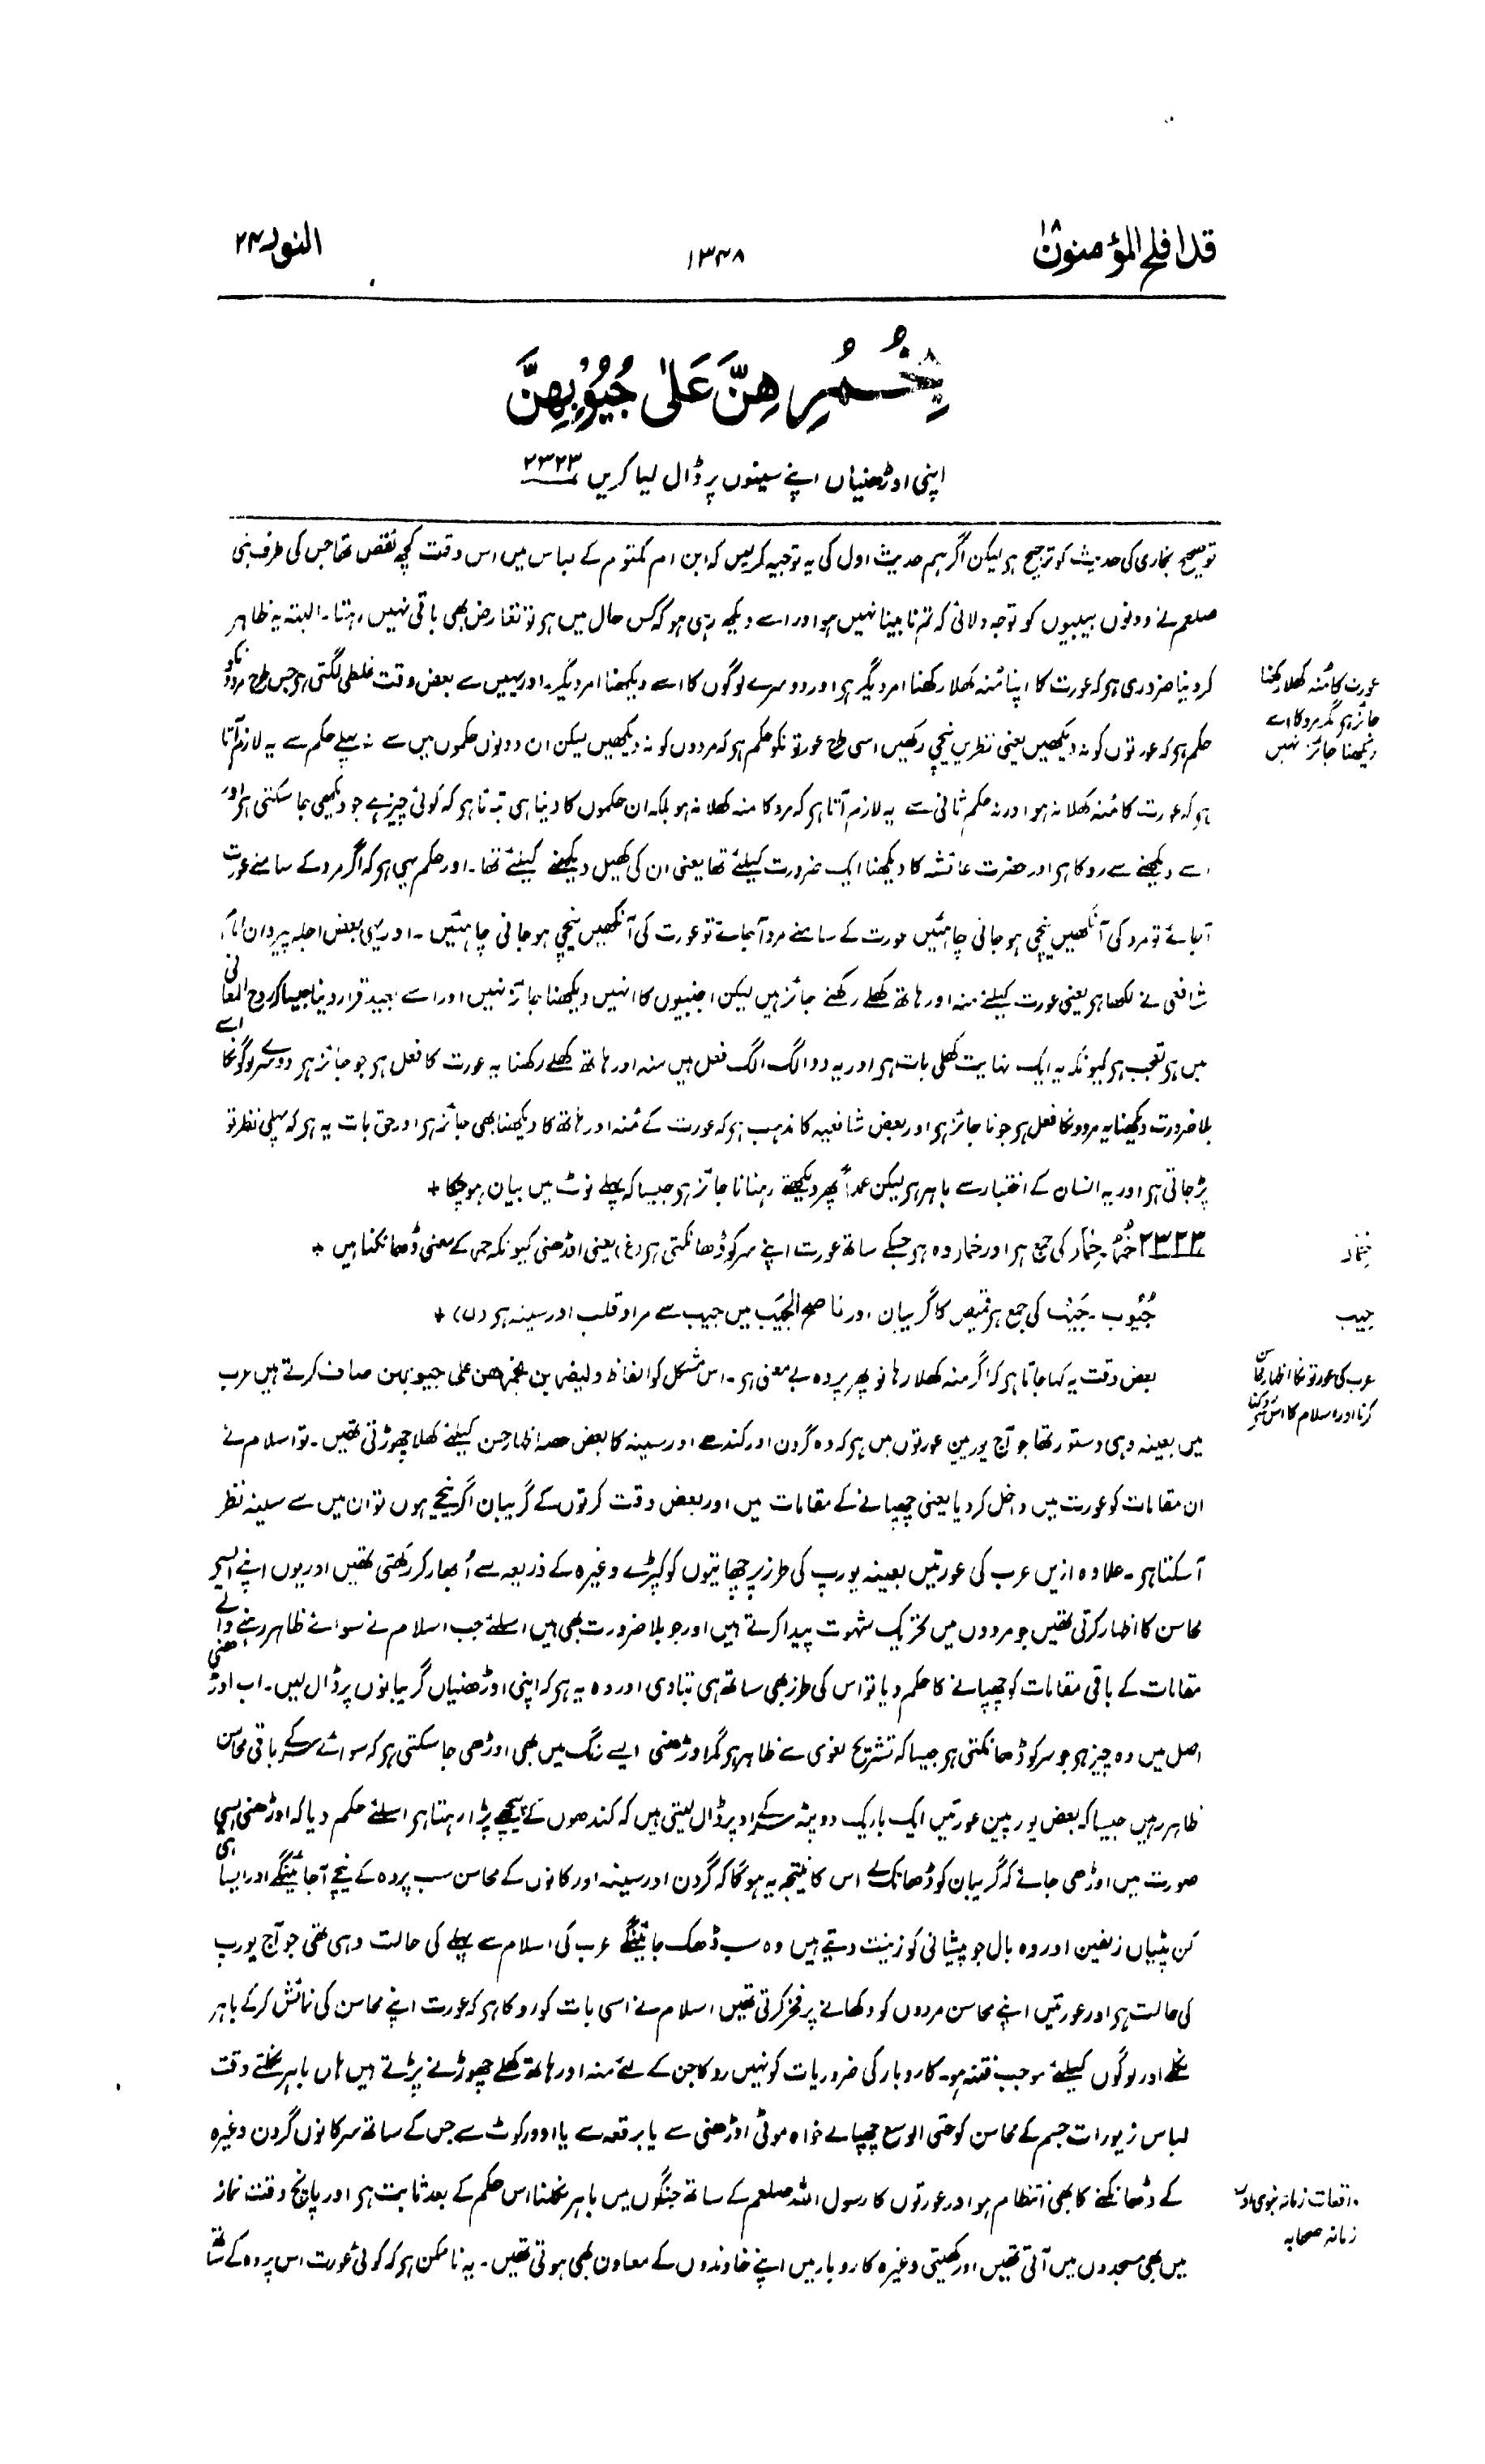 قد افلح المؤمنون ۱۸
۱۳۴۸
النور ۲۴
بِخُمُرِهِنَّ عَلٰى جُيُوْبِهِنَّ
اپنی اوڑھنیاں اپنے سینوں پر ڈال لیا کریں ۲۳۲۳
تو صحیح بخاری کی حدیث کو ترجیح ہو لیکن اگر ہم حدیث اول کی یہ توجیہ کریں کہ ابن ام مکتوم کے لباس میں اس وقت کچھ نقص تھا جس کی طرف نبی
صلعم نے دونوں بیبیوں کو توجہ دلائی کہ تم نابینا نہیں ہو اور اسے دیکھ رہی ہو کہ کس حال میں ہو تو تعارض بھی باقی نہیں رہتا۔ البتہ یہ ظاہر
کر دینا ضروری ہو کہ عورت کا اپنا مُنہ کھلا رکھنا امر دیگر ہو اور دوسرے لوگوں کا اسے دیکھنا امر دیگر۔ اور یہیں سے بعض وقت غلطی لگتی ہو جس طرح مردوں کو
عورت کا مُنہ کھلا رکھنا
جائز ہو مگر مرد کا اسے
دیکھنا جائز نہیں
حکم ہو کہ عورتوں کو نہ دیکھیں یعنی نظریں نیچی رکھیں اسی طرح عورتونکو حکم ہو کہ مردوں کو نہ دیکھیں لیکن ان دونوں حکموں میں سے نہ پہلے حکم سے یہ لازم آتا
ہو کہ عورت کا مُنہ کھلا نہ ہو اور نہ حکم ثانی سے یہ لازم آتا ہو کہ مرد کا منہ کھلا نہ ہو بلکہ ان حکموں کا دینا ہی بتاتا ہو کہ کوئی چیز ہے جو دیکھی جا سکتی ہو اور
اسے دیکھنے سے روکا ہو اور حضرت عائشہ کا دیکھنا ایک ضرورت کیلئے تھا یعنی ان کی کھیل دیکھنے کیلئے تھا۔ اور حکم یہی ہو کہ اگر مرد کے سامنے عورت
آجائے تو مرد کی آنکھیں نیچی ہو جانی چاہئیں عورت کے سامنے مرد آجائے تو عورت کی آنکھیں نیچی ہو جانی چاہئیں۔ اور یہی بعض اجلہ پیروان امام
شافعی نے لکھا ہو یعنی عورت کیلئے منہ اور ہاتھ کھلے رکھنے جائز ہیں لیکن اجنبیوں کا انہیں دیکھنا جائز نہیں اور اسے بعید قرار دینا جیسا کہ روح المعانی
میں ہو تعجب ہو کیونکہ یہ ایک نہایت کھلی بات ہو اور یہ دو الگ الگ فعل ہیں منہ اور ہاتھ کھلے رکھنا یہ عورت کا فعل ہو جو جائز ہو دوسرے لوگونکا اسے
بلا ضرورت دیکھنا یہ مردونکا فعل ہو جو ناجائز ہو اور بعض شافعیہ کا مذہب ہو کہ عورت کے مُنہ اور ہاتھ کا دیکھنا بھی جائز ہو اور حق بات یہ ہو کہ پہلی نظر تو
پڑ جاتی ہو اور یہ انسان کے اختیار سے باہر ہو لیکن عمداً پھر دیکھتے رہنا ناجائز ہو جیسا کہ پچھلے نوٹ میں بیان ہو چکا +
۲۳۲۳ خُمُر۔ خِمَار کی جمع ہو اور خمار وہ ہو جسکے ساتھ عورت اپنے سر کو ڈھانکتی ہو (غ) یعنی اوڑھنی کیونکہ خمر کے معنی ڈھانکنا ہیں +
خِمَار
جُیُوب۔ جَیْب کی جمع ہو قمیص کا گریبان اور ناصح الجَیب میں جیب سے مراد قلب اور سینہ ہو (ل) +
جیب
بعض وقت یہ کہا جاتا ہو کہ اگر منہ کھلا رہا تو پھر پردہ بے معنی ہو۔ اس مشکل کو الفاظ ولیضربن بخمرھن علی جیوبہن صاف کرتے ہیں عرب
عرب کی عورتونکا اظہار محاسن
کرنا اور اسلام کا اس کو روکنا
میں بعینہ وہی دستور تھا جو آج یورپین عورتوں میں ہو کہ وہ گردن اور کندھے اور سینہ کا بعض حصہ اظہار حسن کیلئے کھلا چھوڑتی تھیں۔ تو اسلام نے
ان مقامات کو عورت میں داخل کر دیا یعنی چھپانے کے مقامات میں اور بعض وقت کرتوں کے گریبان اگر نیچے ہوں تو ان میں سے سینہ نظر
آسکتا ہو۔ علاوہ ازیں عرب کی عورتیں بعینہ یورپ کی طرز پر چھاتیوں کو کپڑے وغیرہ کے ذریعہ سے اُبھار کر رکھتی تھیں اور یوں اپنے ایسے
محاسن کا اظہار کرتی تھیں جو مردوں میں تحریک شہوت پیدا کرتے ہیں اور جو بلا ضرورت بھی ہیں اسلئے جب اسلام نے سوائے ظاہر رہنے والے
مقامات کے باقی مقامات کو چھپانے کا حکم دیا تو اس کی طرز بھی ساتھ ہی بتا دی اور وہ یہ ہو کہ اپنی اوڑھنیاں گریبانوں پر ڈال لیں۔ اب اوڑھنی
اصل میں وہ چیز ہو جو سر کو ڈھانکتی ہو جیسا کہ تشریح لغوی سے ظاہر ہو مگر اوڑھنی ایسے رنگ میں بھی اوڑھی جا سکتی ہو کہ سوائے سر کے باقی محاسن
ظاہر رہیں جیسا کہ بعض یورپین عورتیں ایک باریک دوپٹہ سر کے اوپر ڈال لیتی ہیں کہ کندھوں کے پیچھے پڑا رہتا ہو اسلئے حکم دیا کہ اوڑھنی ایسی
صورت میں اوڑھی جائے کہ گریبان کو ڈھانک لے اس کا نتیجہ یہ ہوگا کہ گردن اور سینہ اور کانوں کے محاسن سب پردہ کے نیچے آجائینگے اور ایسا ہی
کن پٹیاں زلفیں اور وہ بال جو پیشانی کو زینت دیتے ہیں وہ سب ڈھک جائینگے عرب کی اسلام سے پہلے کی حالت وہی تھی جو آج یورپ
کی حالت ہو اور عورتیں اپنے محاسن مردوں کو دکھانے پر فخر کرتی تھیں اسلام نے اسی بات کو روکا ہو کہ عورت اپنے محاسن کی نمائش کرکے باہر
نکلے اور لوگوں کیلئے موجب فتنہ ہو۔ کاروبار کی ضروریات کو نہیں روکا جن کے لئے منہ اور ہاتھ کھلے چھوڑنے پڑتے ہیں ہاں باہر نکلتے وقت
لباس زیورات جسم کے محاسن کو حتی الوسع چھپائے خواہ موٹی اوڑھنی سے یا برقعہ سے یا اوورکوٹ سے جس کے ساتھ سر کانوں گردن وغیرہ
کے ڈھانکنے کا بھی انتظام ہو اور عورتوں کا رسول اللہ صلعم کے ساتھ جنگوں میں باہر نکلنا اس حکم کے بعد ثابت ہو اور پانچ وقت نماز
واقعات زمانہ نبوی اور
زمانہ صحابہ
میں بھی مسجدوں میں آتی تھیں اور کھیتی وغیرہ کاروبار میں اپنے خاوندوں کے معاون بھی ہوتی تھیں۔ یہ ناممکن ہو کہ کوئی عورت اس پردہ کے ساتھ